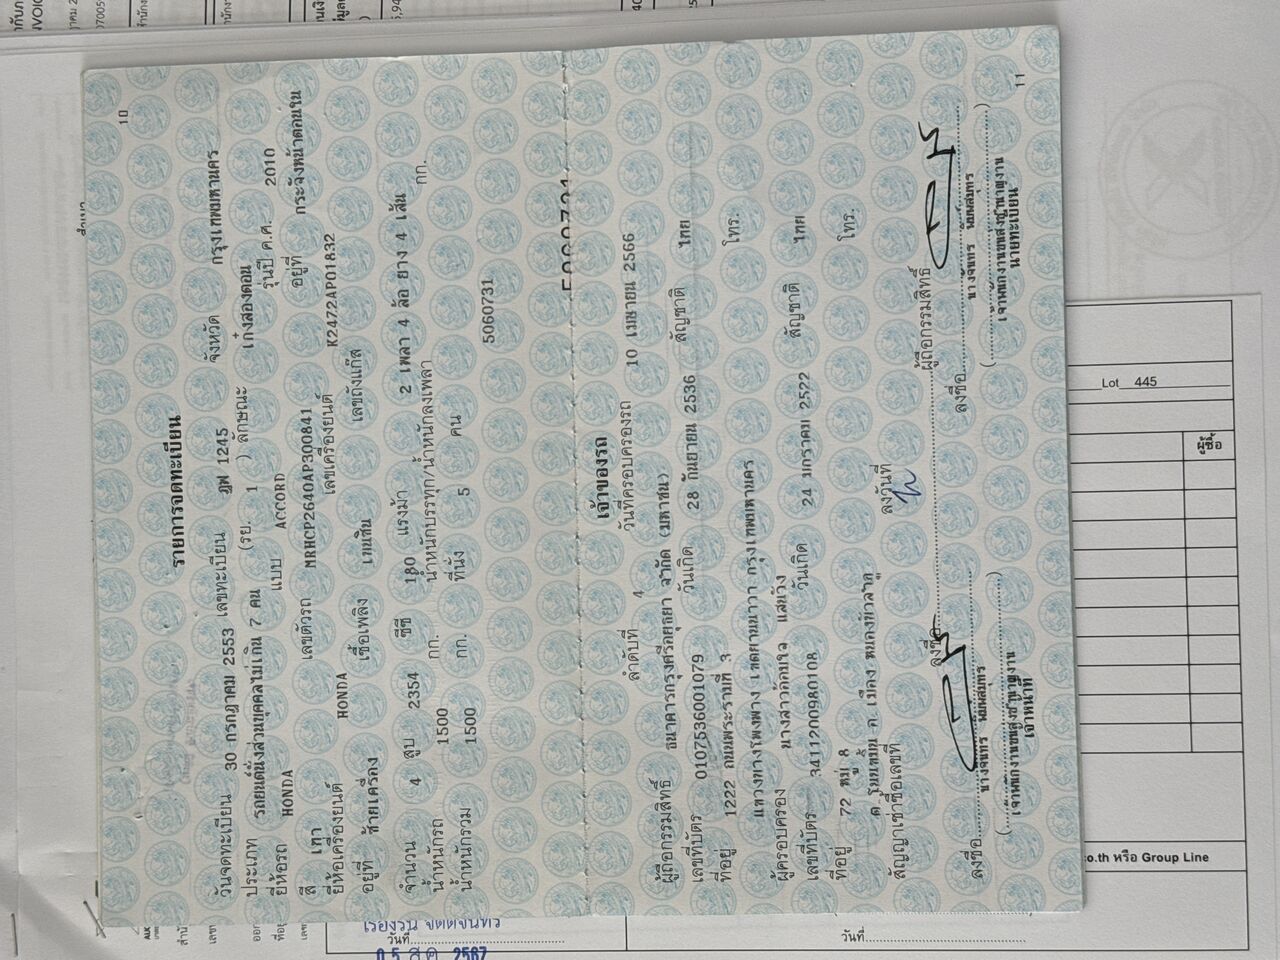 10
รายการจดทะเบียน
วันจดทะเบียน 30 กรกฎาคม 2553 เลขทะเบียน ฎฬ 1245 จังหวัด กรุงเทพมหานคร
ประเภท รถยนต์นั่งส่วนบุคคลไม่เกิน 7 คน (รย. 1 ) ลักษณะ เก๋งสองตอน
ยี่ห้อรถ HONDA แบบ ACCORD รุ่นปี ค.ศ. 2010
สี เทา เลขตัวรถ MRHCP2640AP300841 อยู่ที่ กระจังหน้าตอนใน
ยี่ห้อเครื่องยนต์ HONDA เลขเครื่องยนต์ K2472AP01832
อยู่ที่ ซ้ายเครื่อง เชื้อเพลิง เบนซิน เลขถังแก๊ส
จำนวน 4 สูบ 2354 ซีซี 180 แรงม้า 2 เพลา 4 ล้อ ยาง 4 เส้น
น้ำหนักรถ 1500 กก. น้ำหนักบรรทุก/น้ำหนักลงเพลา กก.
น้ำหนักรวม 1500 กก. ที่นั่ง 5 คน
5060731
เจ้าของรถ
ลำดับที่ 4 วันที่ครอบครองรถ 10 เมษายน 2566
ผู้ถือกรรมสิทธิ์ ธนาคารกรุงศรีอยุธยา จำกัด (มหาชน)
เลขที่บัตร 0107536001079 วันเกิด 28 กันยายน 2536 สัญชาติ ไทย
ที่อยู่ 1222 ถนนพระรามที่ 3 โทร.
แขวงบางโพงพาง เขตยานนาวา กรุงเทพมหานคร
ผู้ครอบครอง
เลขที่บัตร 3411200980108 วันเกิด 24 มกราคม 2522 สัญชาติ ไทย
ที่อยู่ 72 หมู่ 8 โทร.
สัญญาเช่าซื้อเลขที่ ลงวันที่
ลงชื่อ ผู้ถือกรรมสิทธิ์
ลงชื่อ ลงชื่อ
เจ้าพนักงานขนส่งชำนาญงาน เจ้าพนักงานขนส่งชำนาญงาน
เจ้าหน้าที่ นายทะเบียน
11
Lot 445
ผู้ซื้อ
.co.th หรือ Group Line
วันที่
วันที่